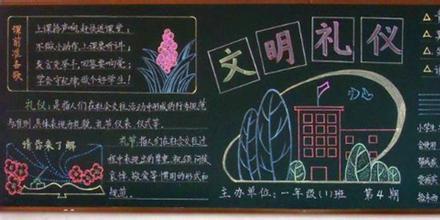 课前准备歌
上课铃声响,赶快进课堂;
不做小动作,上课要听讲;
发言先举手,回答要响亮;
学会守纪律,做个好学生!
文明礼仪
礼仪:是指人们在社会交往活动中形成的行为规范
与准则。具体表现为礼貌、礼节、仪表、仪式等。
请你来了解
礼节:指人们在社会交往过
程中表现出的尊重、祝颂、问候
哀悼、致意等惯用的形式和
规范。
主办单位:一年级(1)班 第4期
小学生